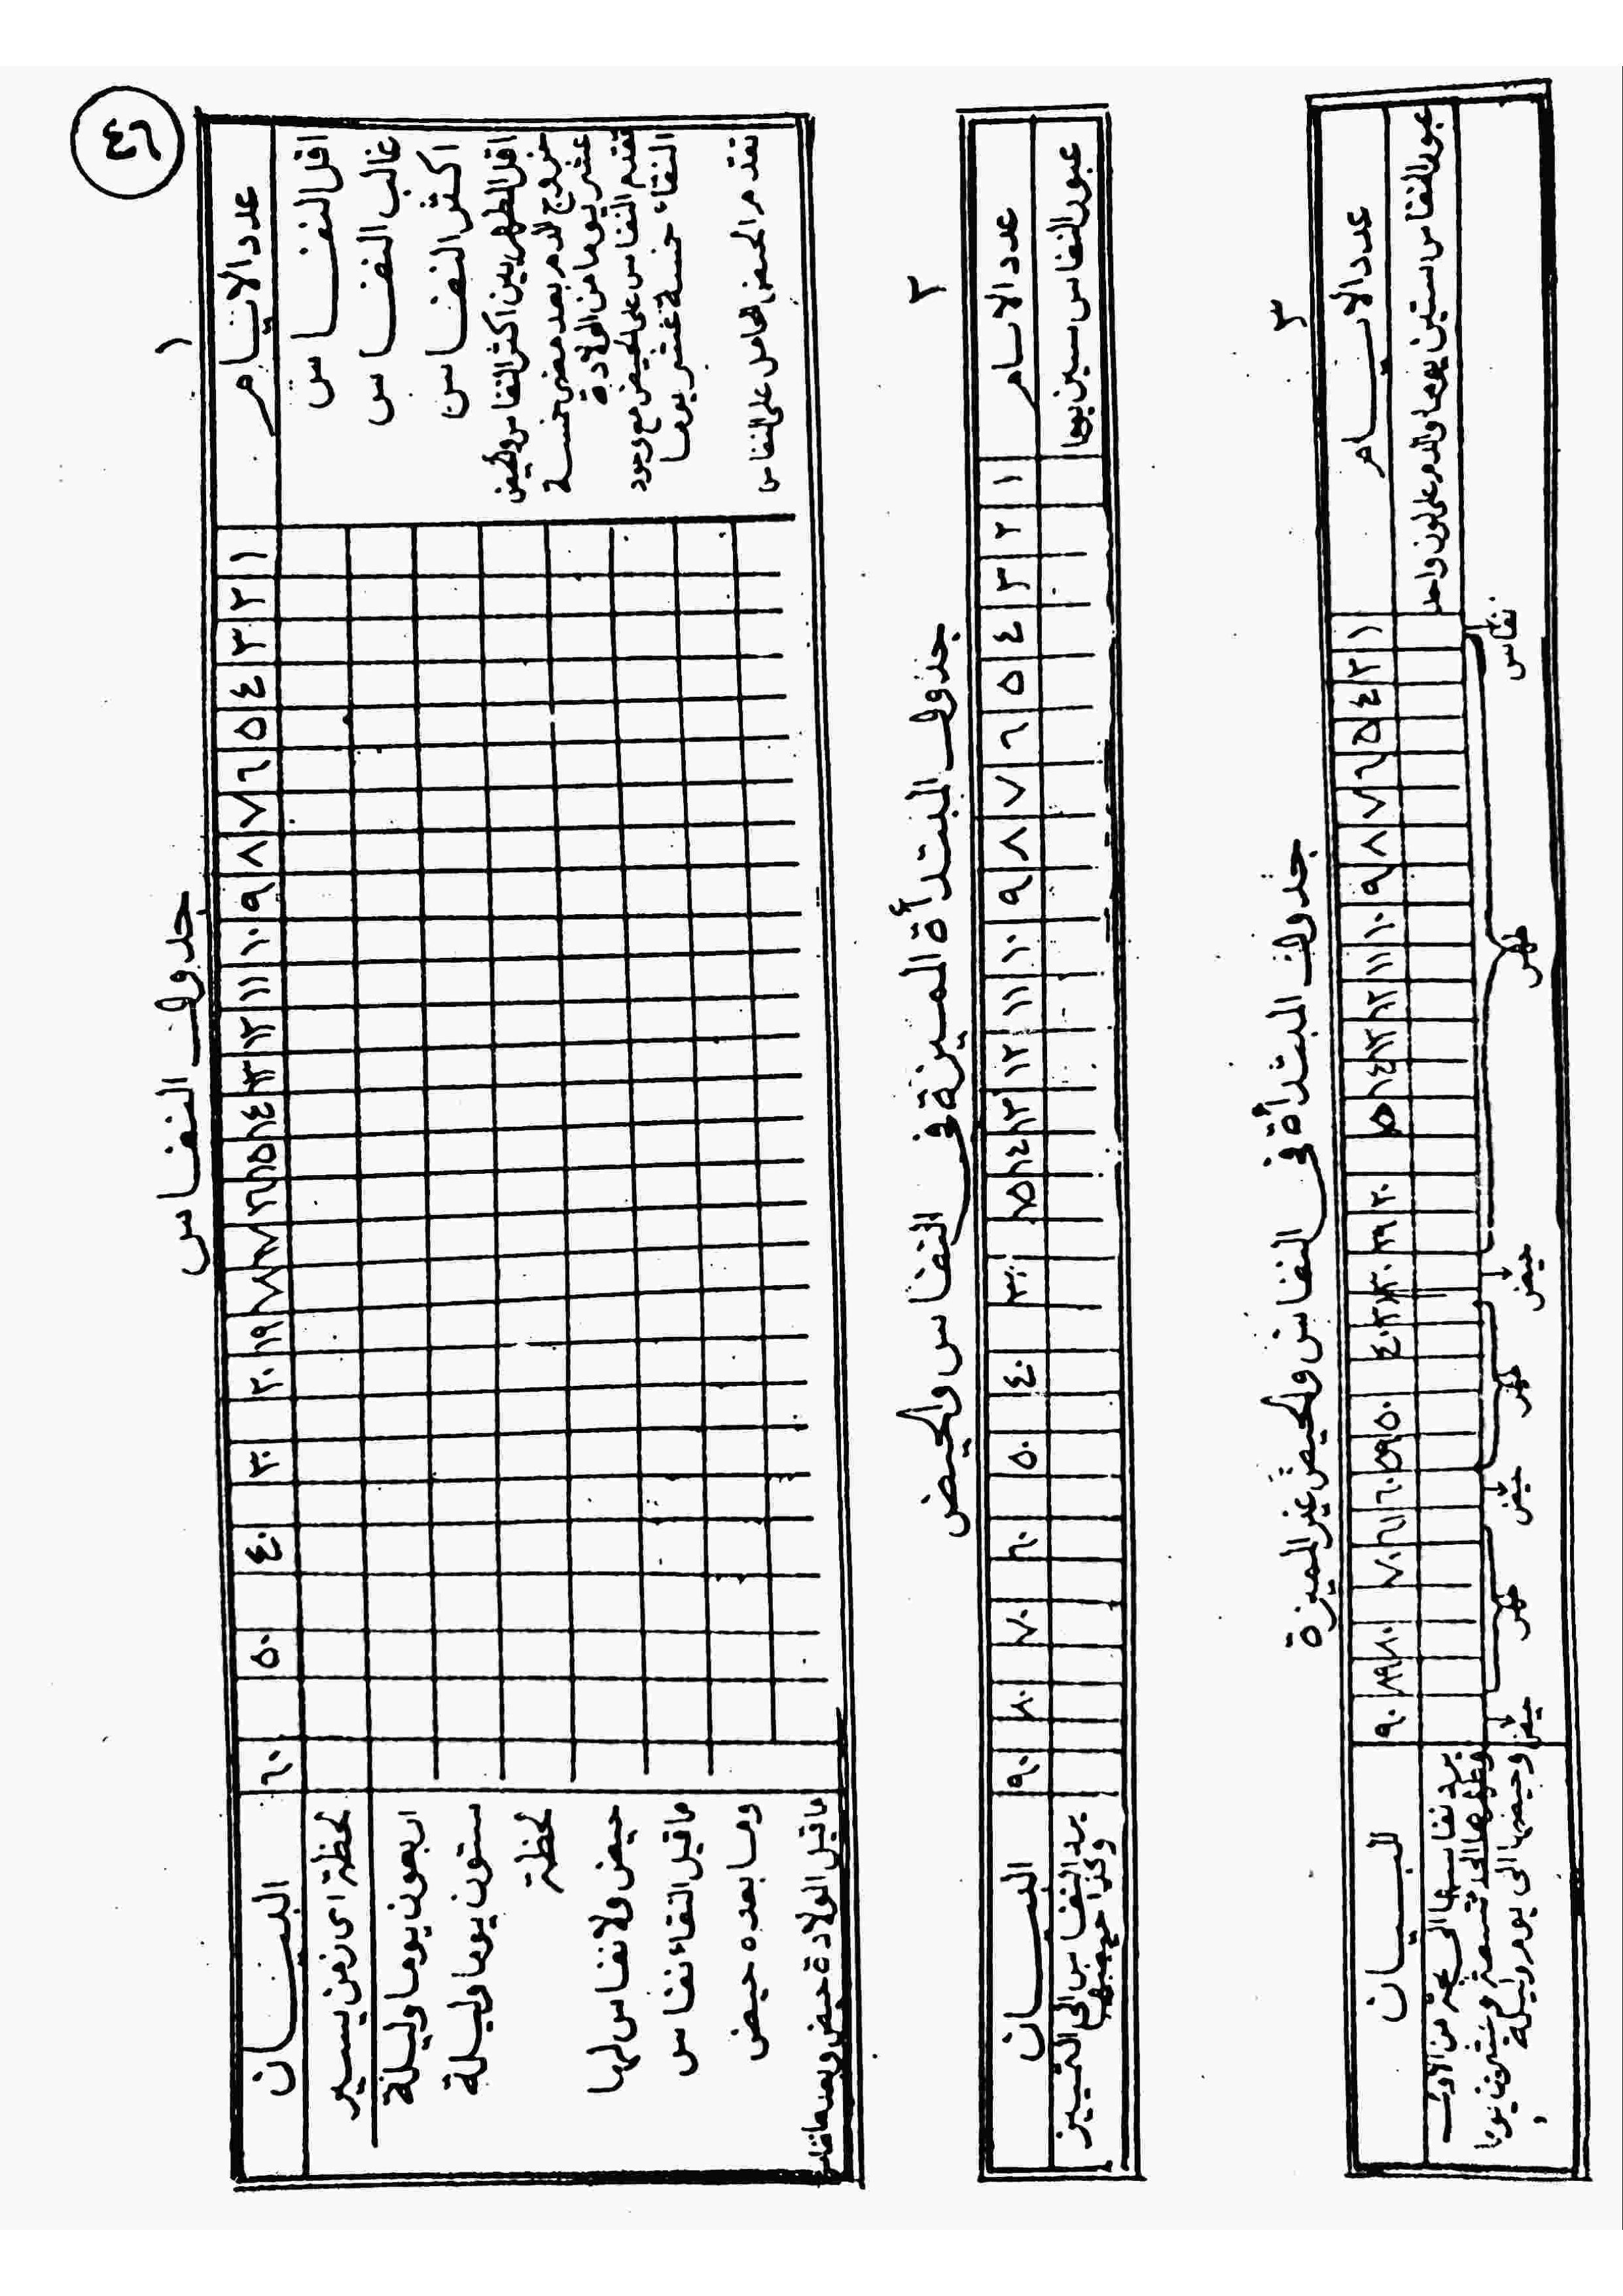 ٤٦
١
جدول النفاس
عدد الايام ١ ٢ ٣ ٤ ٥ ٦ ٧ ٨ ٩ ١٠ ١١ ١٢ ١٣ ١٤ ١٥ ١٦ ١٧ ١٨ ١٩ ٢٠ ٣٠ ٤٠ ٥٠ ٦٠ البيان
اقل النفاس لحظة اى زمن يسير
غالب النفاس اربعون يوما وليلة
اكثر النفاس ستون يوما وليلة
اقل الطهر بين اكثر النفاس والحيض لحظة
خروج الدم بعد مضى خمسة
عشر يوما من الولادة حيض ولا نفاس لها
تقدم النفاس على الحيض مع وجود ماقبل النقاء نفاس
النقاء خمسة عشر يوما وما بعده حيض
تقدم الحيض الحامل على النفاس ماقبل الولادة حيض وبعدها نفاس
٢
جدول المبتدأة المميزة فى النفاس والحيض
عدد الايام ١ ٢ ٣ ٤ ٥ ٦ ٧ ٨ ٩ ١٠ ١١ ١٢ ١٣ ١٤ ١٥ ٣٠ ٤٠ ٥٠ ٦٠ ٧٠ ٨٠ ٩٠ البيان
عبور النفاس ستين يوما يرد النفاس الى التمييز
وكذا حيضها
٣
جدول المبتدأة فى النفاس والحيض غير المميزة
عدد الايام ١ ٢ ٤ ٥ ٦ ٧ ٨ ٩ ١٠ ١١ ١٢ ١٣ ١٤ ١٥ ٢٠ ٢٩ ٣٠ ٣١ ٤٠ ٥٠ ٥٩ ٦٠ ٦١ ٧٠ ٨٠ ٨٩ ٩٠ البيان
عبور النفاس ستين يوما والدم على لون واحد يرد نفاسها الى من الأول
وطهرها الى تسعة وعشرون يوما
نفاس طهر حيض طهر حيض طهر حيض وحيضها الى يوم وليلة